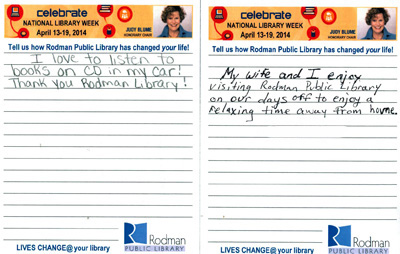 celebrate
NATIONAL LIBRARY WEEK
April 13-19, 2014
JUDY BLUME
HONORARY CHAIR
Tell us how Rodman Public Library has changed your life!
I love to listen to
books on CD in my car!
Thank you Rodman Library!
LIVES CHANGE@ your library
Rodman
PUBLIC LIBRARY
celebrate
NATIONAL LIBRARY WEEK
April 13-19, 2014
JUDY BLUME
HONORARY CHAIR
Tell us how Rodman Public Library has changed your life!
My wife and I enjoy
visiting Rodman Public Library
on our days off to enjoy a
relaxing time away from home.
LIVES CHANGE@ your library
Rodman
PUBLIC LIBRARY